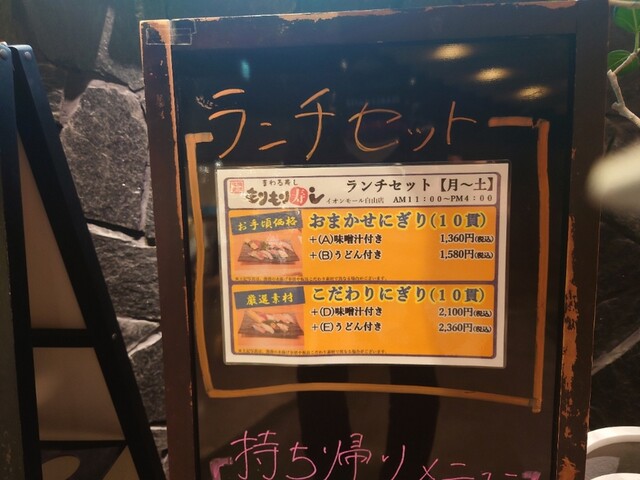 ランチセット
まわる寿し
もりもり寿し
ランチセット【月～土】
イオンモール白山店 AM11:00～PM4:00
お手頃価格
おまかせにぎり(10貫)
+(A)味噌汁付き 1,360円(税込)
+(B)うどん付き 1,580円(税込)
厳選素材
こだわりにぎり(10貫)
+(D)味噌汁付き 2,100円(税込)
+(E)うどん付き 2,360円(税込)
持ち帰りメニュー